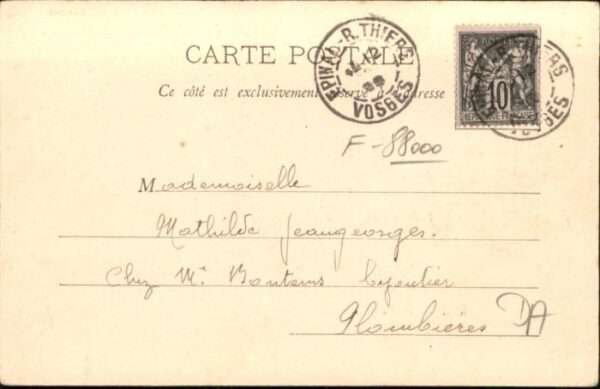 CARTE POSTALE
EPINAL-R. THIERS
VOSGES
10
Ce côté est exclusivement réservé à l'adresse
F-88000
Mademoiselle
Mathilde Jeangeorges.
Chez Mr
Plombières
DA